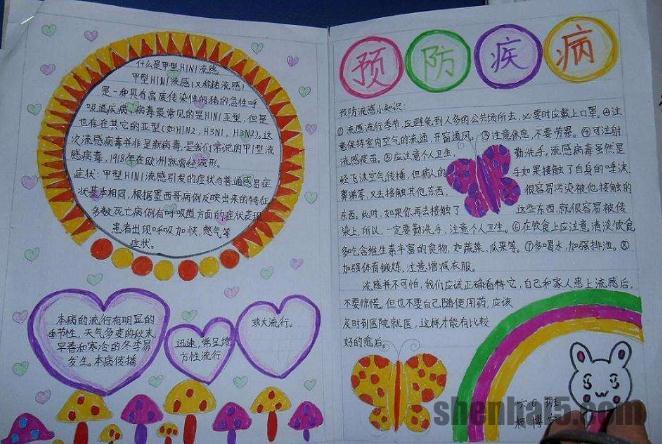 什么是甲型H1N1流感
甲型H1N1流感(又称猪流感)
是一种具有高度传染性的猪的急性呼
吸道疾病,病毒最常见的是H1N1亚型,但是
也存在其它的亚型(如H1N2、H3N1、H3N2)。这
次流感病毒书非是新病毒,是我们常说的甲1型流
感病毒,
症状:甲型H1N1流感引发的症状与普通感冒症
状基本相同,根据墨西哥病例反映出来的特征
多数死亡病例有呼吸道方面的症状表现
患者出现呼吸加快、憋气等
症状。
本病的流行有明显的
季节性,天气多变的秋末、
早春和寒冷的冬季易
发生。本病传播
迅速,常呈地
方性流行
或大流行。
预防疾病
预防流感小知识:
①流感流行季节,应避免到人多的公共场所去,必要时应戴上口罩。②注
意保持室内空气的流通,开窗通风。③注意休息,不要劳累。④可注射
流感疫苗。⑤应注意个人卫生,勤洗手,流感病毒虽然是
经飞沫空气传播,但病人的手如果接触了自身的唾沫、
鼻涕等,又去接触其他东西,很容易污染被他接触的
东西。此时,如果你再去接触了这些东西,就很容易被传
染上,所以,一定要勤洗手,注意个人卫生。⑥在饮食上应注意,清淡饮食
多吃含维生素丰富的食物,如蔬菜、瓜果等。⑦多喝水,加强排泄。⑧
加强体育锻炼,注意增减衣服。
流感并不可怕,我们应该正确看待它,自己和家人患上流感后,
不要惊慌。但也不要自己随便用药,应该
及时到医院就医,这样才能有比较
好的治愈。
shenbai5.com